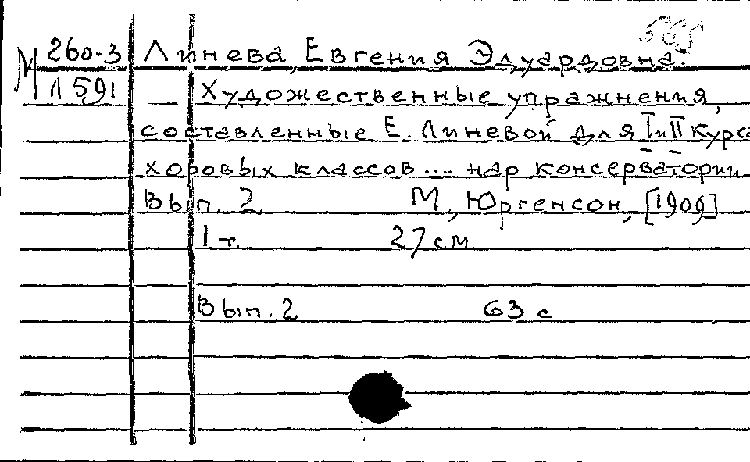 М 260-3 Линева, Евгения Эдуардовна.
Л 591 Художественные упражнения,
составленные Е. Линевой для I и II курса
хоровых классов ... нар консерватории
Вып. 2 М., Юргенсон, [1909]
1 т. 27 см
Вып. 2 63 с